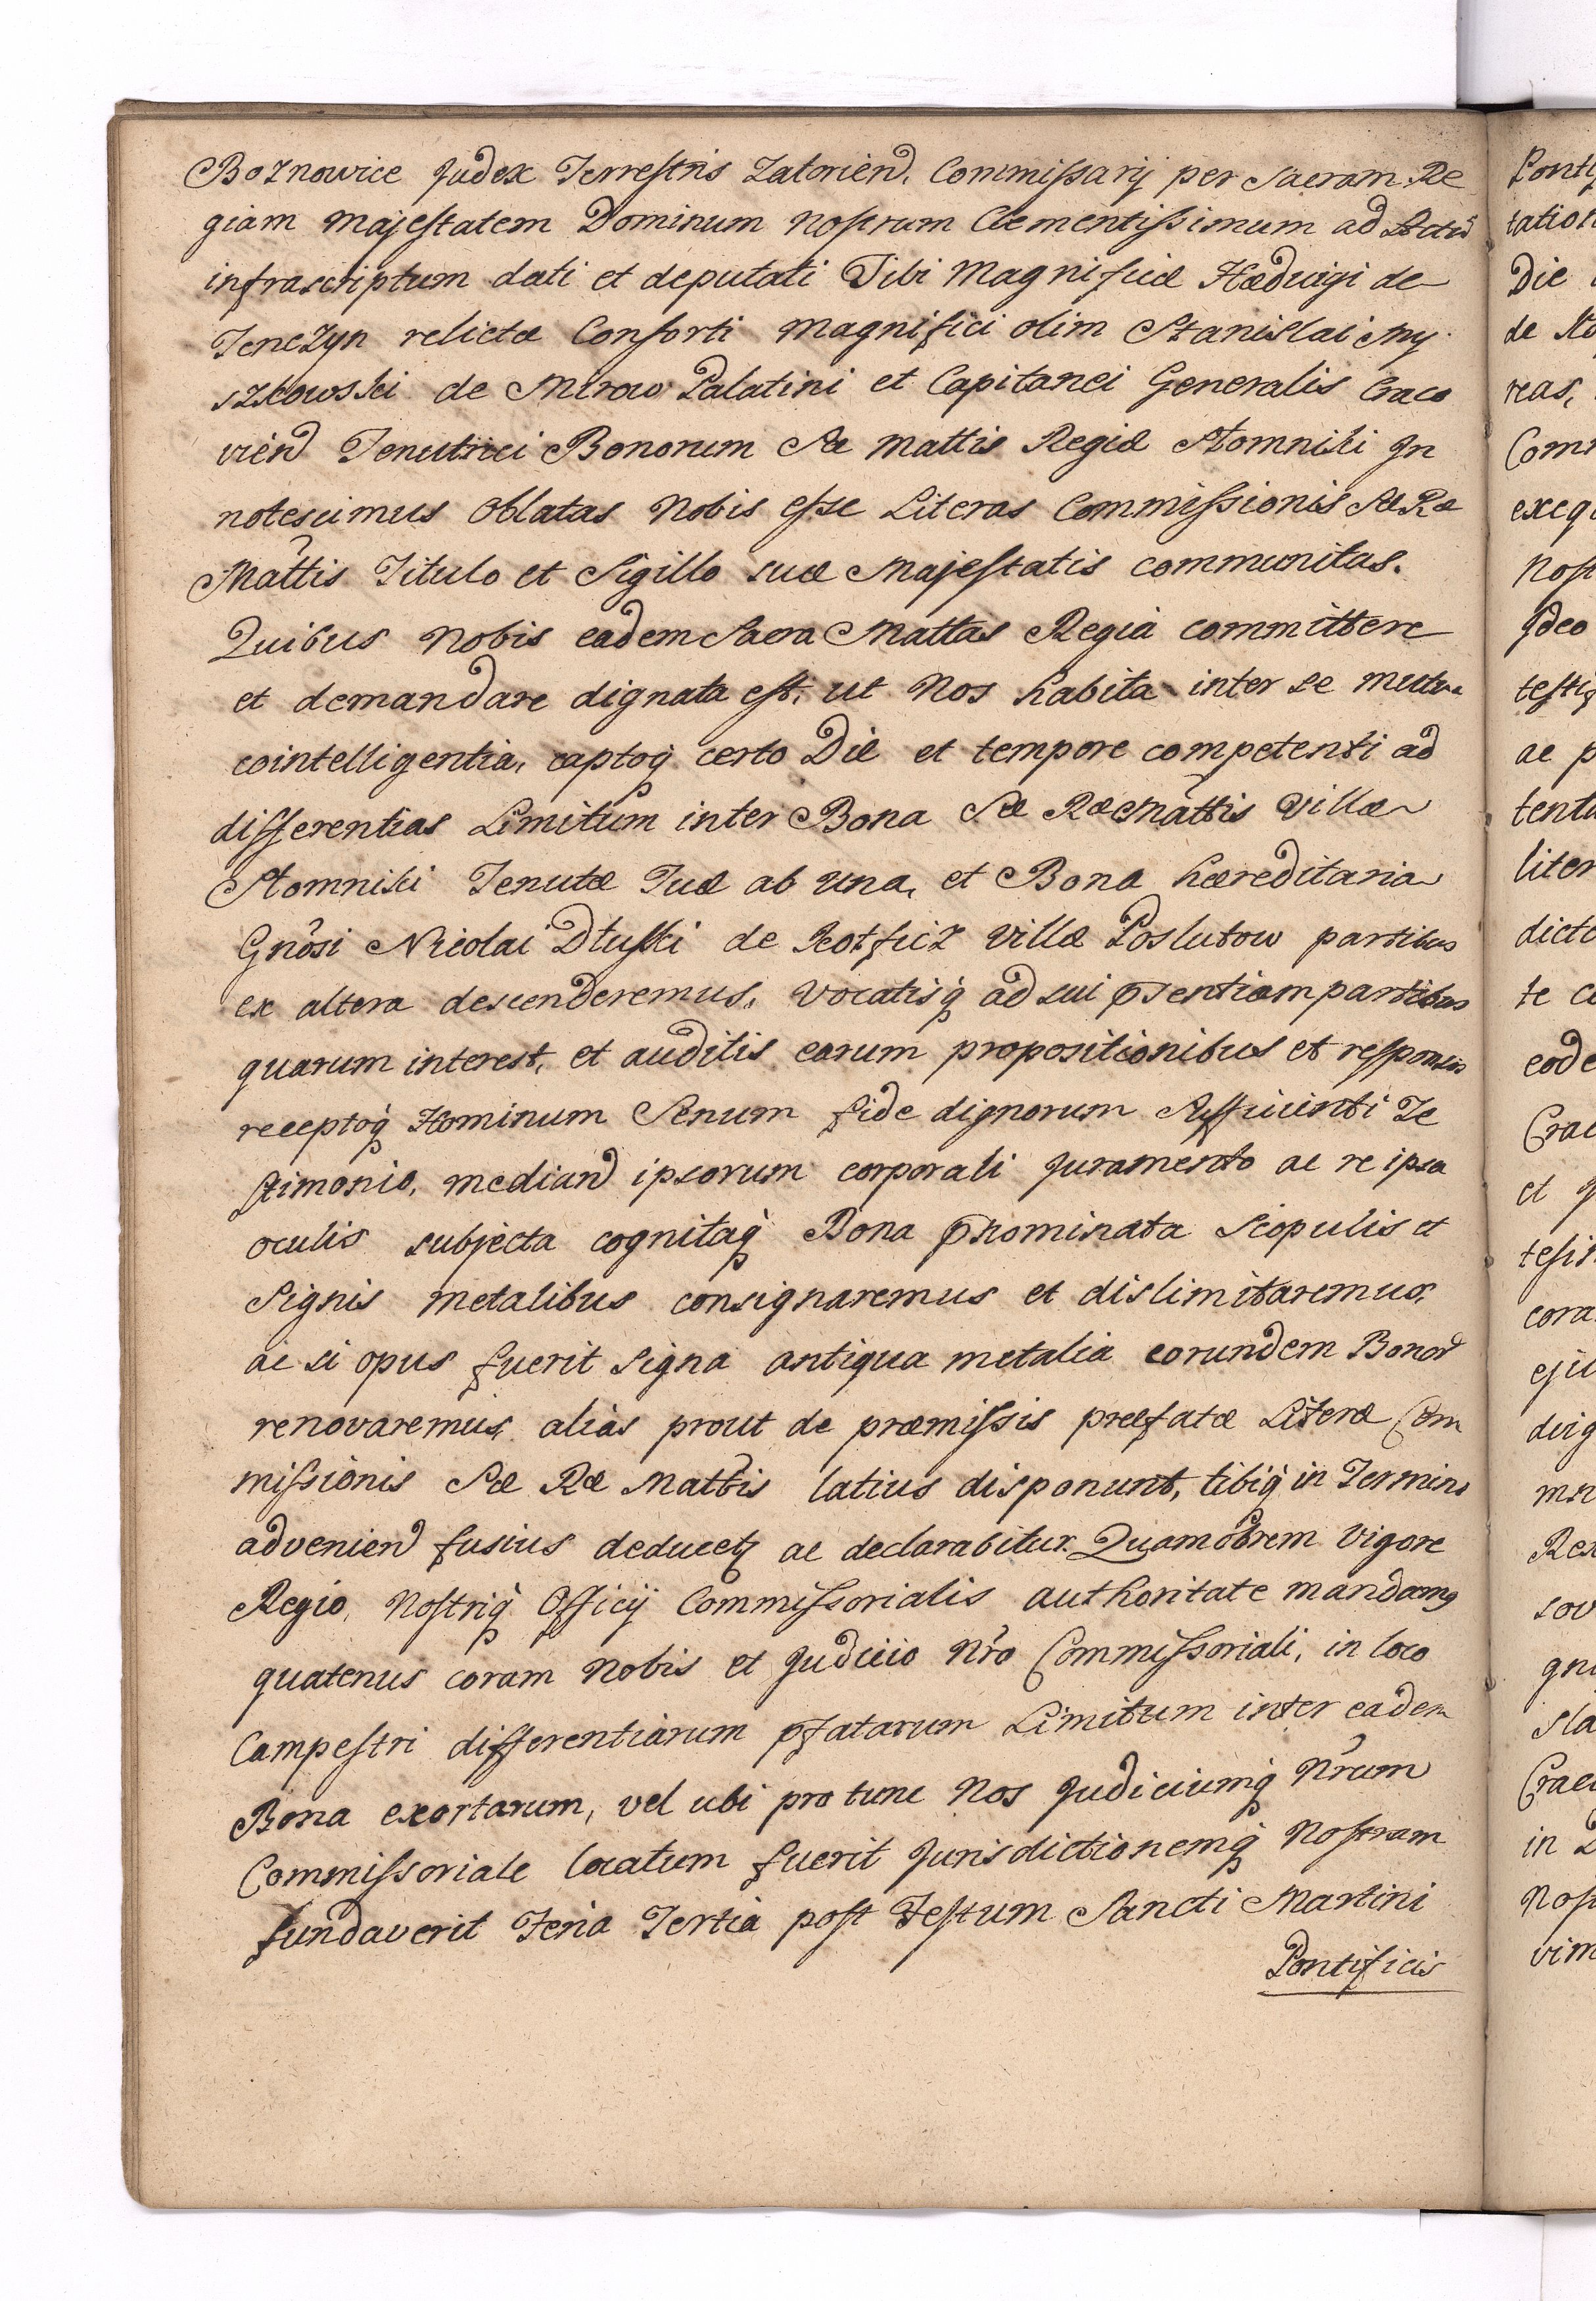 Boznowice Judex Terrestris Zatorien. Commissarij per Sacram Re
giam Majestatem Dominum Nostrum Clementissimum ad Actũ
infrascriptum dati et deputati Tibi Magnificæ Hædvigi de
Tenczyn relictæ Consorti Magnifici olim Stanislai My
szkowski de Mirow Palatini et Capitanei Generalis Craco
vien Tenutrici Bonorum Sæ Mattis Regiæ Stomniki Jn
notescimus Oblatas Nobis esse Literas Commissionis Sæ Ræ
Mattis Titulo et Sigillo suæ Majestatis communitas.
Quibus Nobis eadem Sacra Mattas Regia committere
et demandare dignata est, ut Nos habita inter se mutua
cointelligentia, captoq̀ certo Die et tempore competenti ad
differentias Limitum inter Bona Sæ Ræ Mattis Villæ
Stomniki Tenutæ Tuæ ab una, et Bona hæreditaria
Gnosi Nicolai Dłuski de Kotficz Villæ Poslutow partibus
ex altera descenderemus, Vocatisq̀ ad sui p̄sentiam partibus
quarum interest, et auditis earum propositionibus et responsis
receptoq̀ Hominum Senum fide dignorum Sufficienti Te
stimonio, median ipsorum corporali Juramento ac re ipsa
oculis subjecta cognitaq̀ Bona p̄nominata Scopulis et
Signis metalibus consignaremus et dislimitaremus,
ac si opus fuerit Signa antiqua metalia eorundem Bonor
renovaremus, aliàs prout de præmissis præfatæ Literæ Com
missionis Sæ Ræ Mattis latius disponunt, tibiq̀ in Termino
advenien fusius deducetr ac declarabitur. Quamobrem Vigore
Regio, Nostriq̀ Officij Commissorialis authoritate mandamq
quatenus coram Nobis et Judicio Nro Commissoriali, in loco
Campestri differentiarum p̄fatarum Limitum inter eadem
Bona exortarum, vel ubi pro tunc Nos Judiciumq̀ Nrum
Commissoriale locatum fuerit Jurisdictionemq̀ Nostram
fundaverit Feria Tertia post Festum Sancti Martini
Pontificis